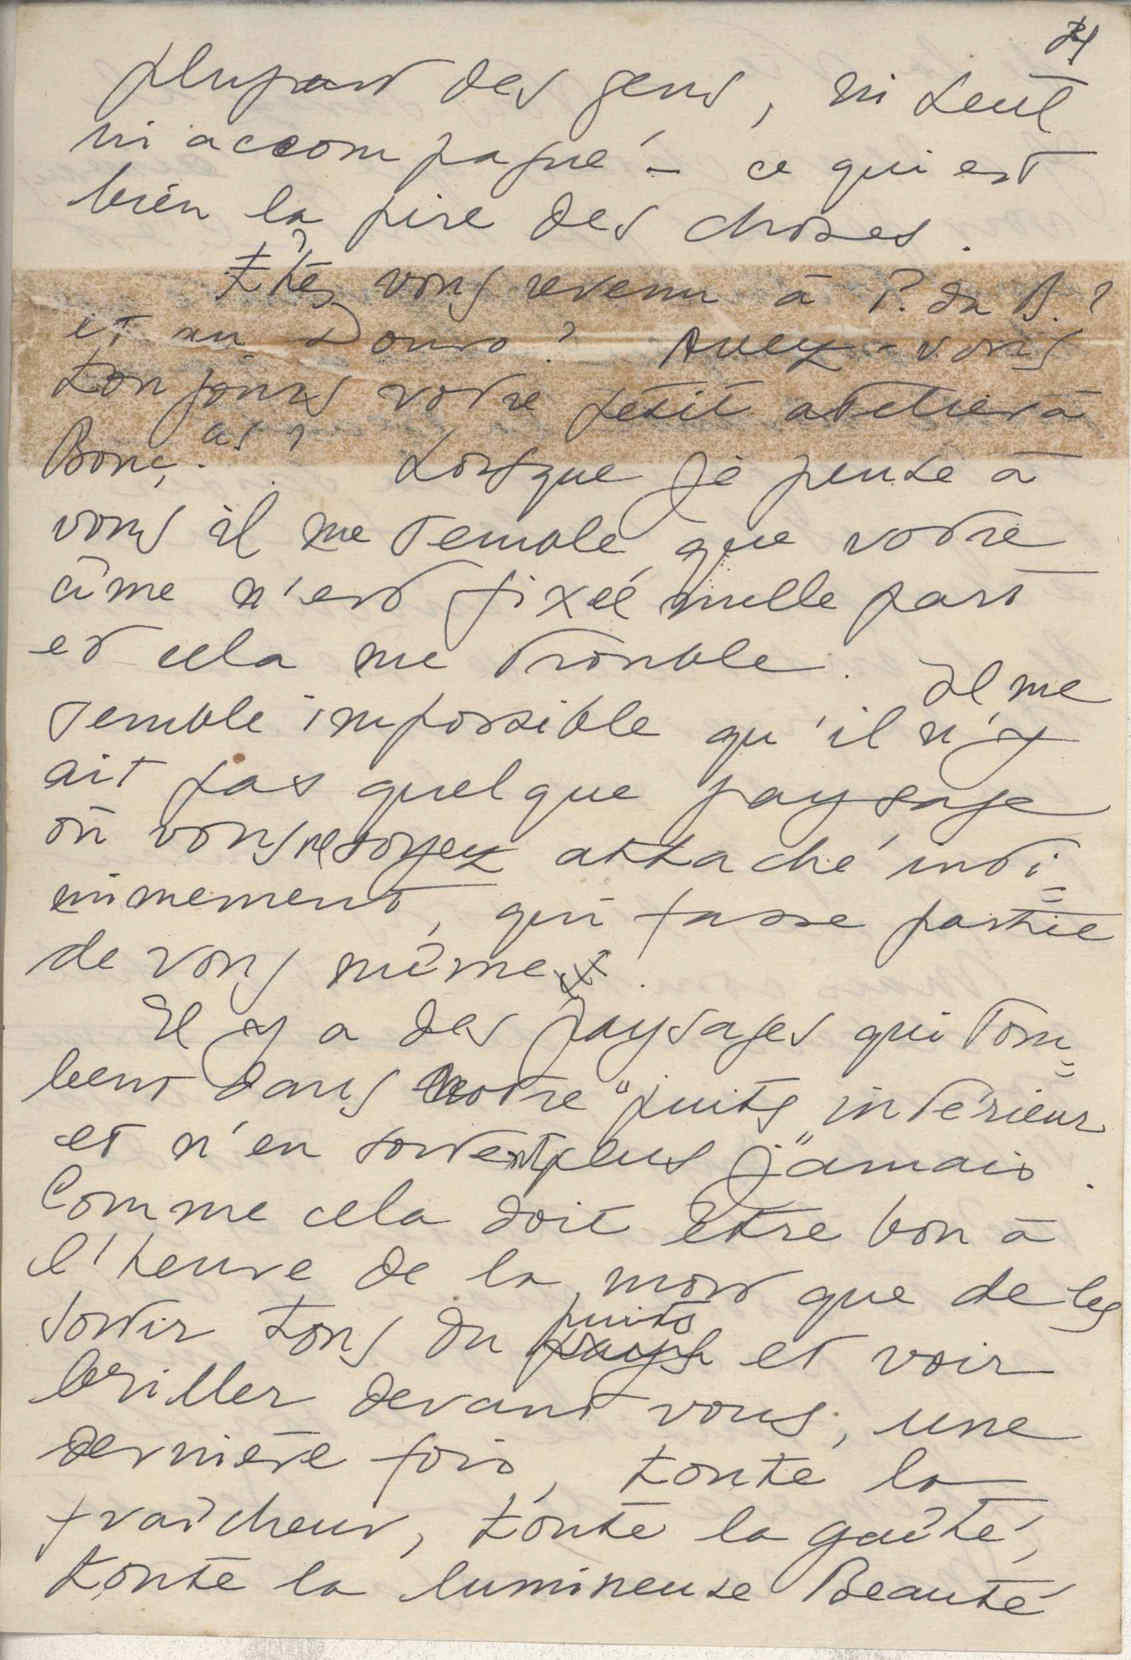 plupart des gens, ni seul
ni accompagné – ce qui est
bien la pire des choses.
Êtes vous revenu à P. da B.?
et au Douro? Avez-vous
toujours votre petit atelier à
Bonç.as?. Lorsque je pense à
vous il me semble que votre
âme n'est fixée nulle part
et cela me trouble. Il me
semble impossible qu'il n'y
ait pas quelque paysage
où vous ne soyez attaché inti=
mement, qui fasse partie
de vous même.
Il y a des paysages qui tom=
bent dans notre "puits intérieur"
et n'en sortent plus jamais.
Comme cela doit être bon à
l'heure de la mort que de les
sortir tous du puits et voir
briller devant vous, une
dernière fois, toute la
fraîcheur, toute la gaîté,
toute la lumineuse Beauté